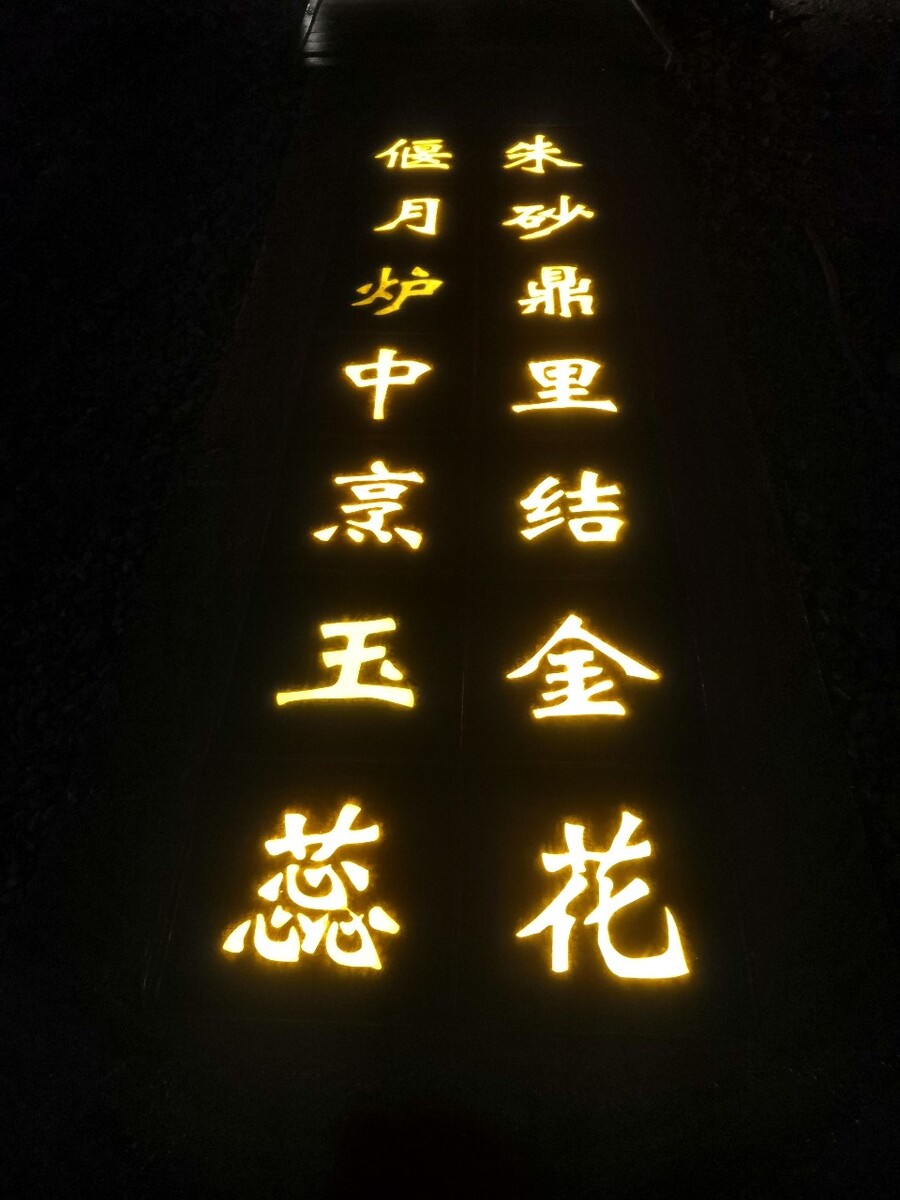 朱砂鼎里结金花
偃月炉中烹玉蕊